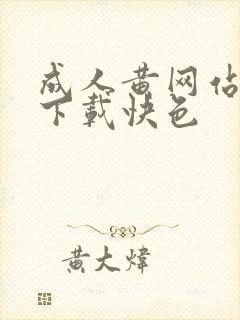 成人黄网佔
下载快色
黄大炜